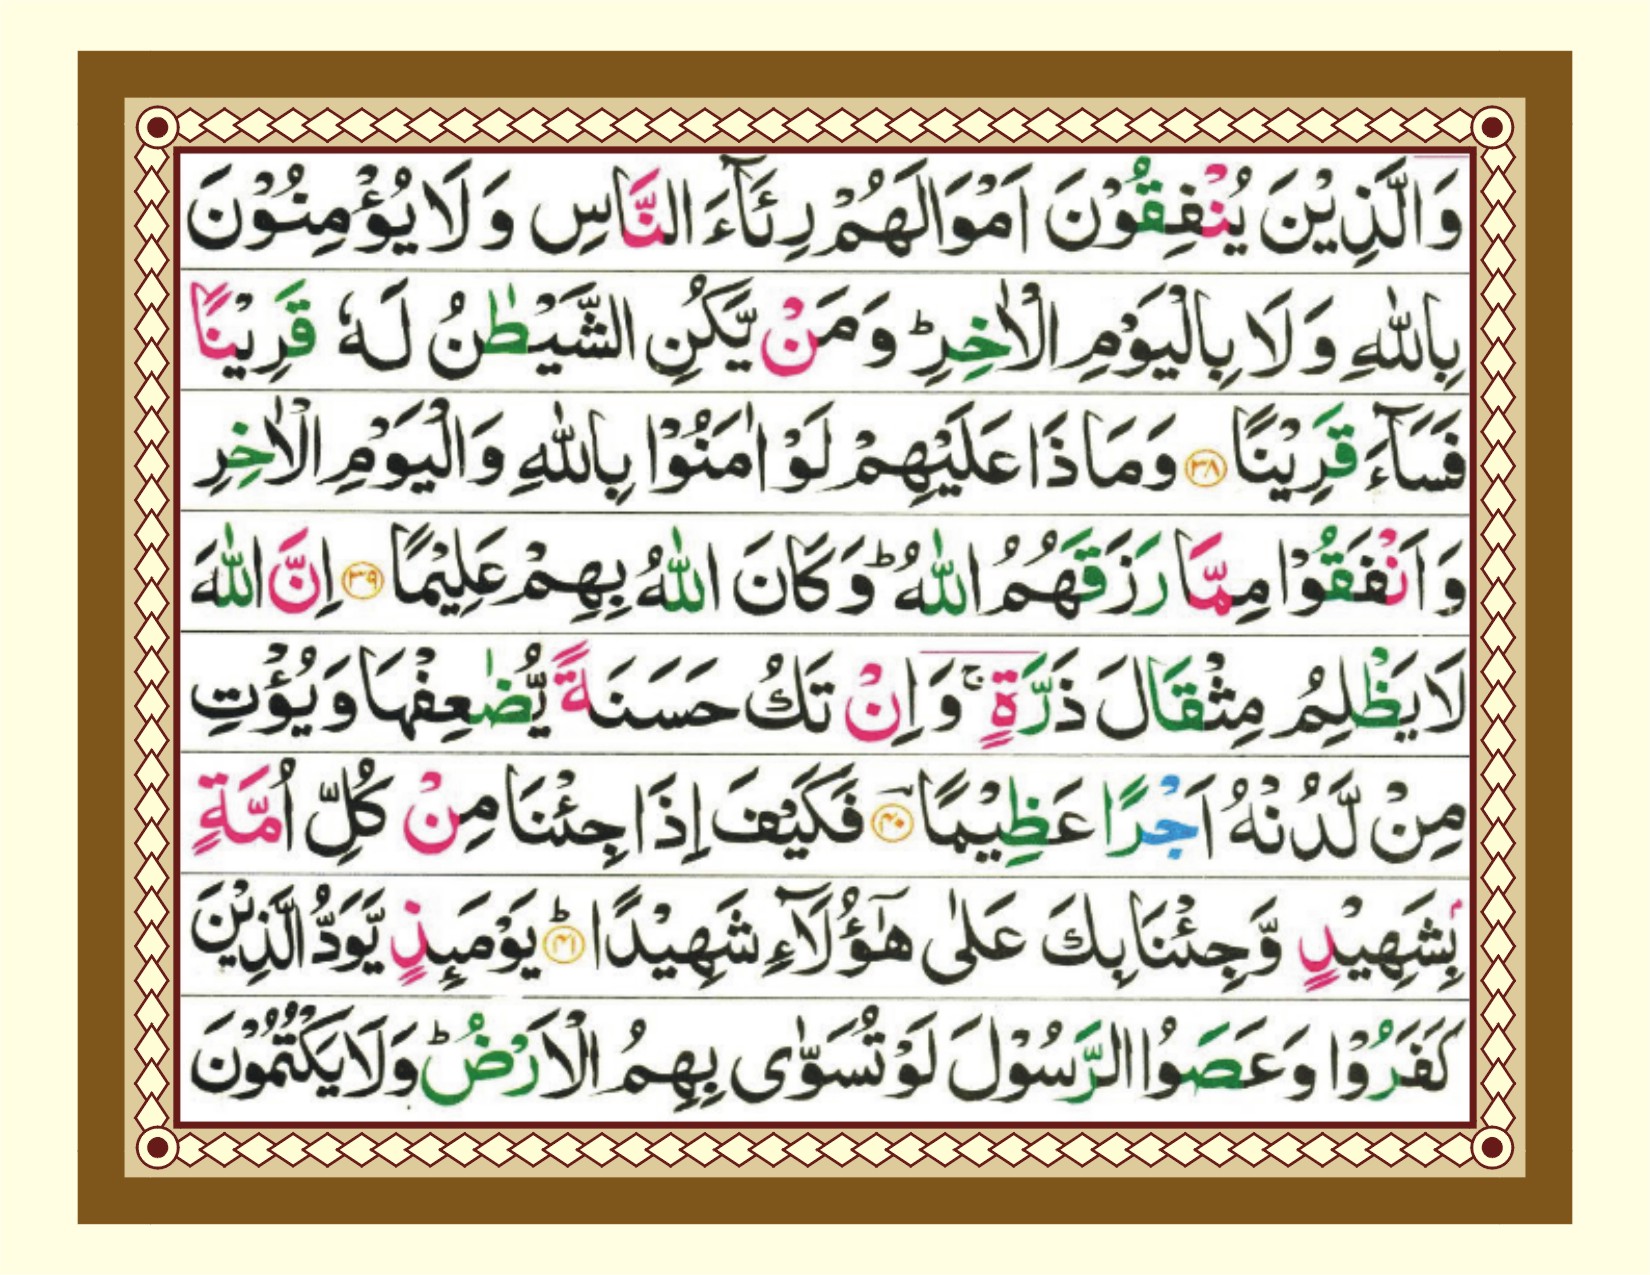 وَالَّذِيْنَ يُنْفِقُوْنَ اَمْوَالَهُمْ رِئَآءَ النَّاسِ وَ لَا يُؤْمِنُوْنَ
بِاللّٰهِ وَ لَا بِالْيَوْمِ الْاٰخِرِ ؕ وَ مَنْ يَّكُنِ الشَّيْطٰنُ لَهٗ قَرِيْنًا
فَسَآءَ قَرِيْنًا ﴿۳۸﴾ وَ مَا ذَا عَلَيْهِمْ لَوْ اٰمَنُوْا بِاللّٰهِ وَ الْيَوْمِ الْاٰخِرِ
وَ اَنْفَقُوْا مِمَّا رَزَقَهُمُ اللّٰهُ ؕ وَ كَانَ اللّٰهُ بِهِمْ عَلِيْمًا ﴿۳۹﴾ اِنَّ اللّٰهَ
لَا يَظْلِمُ مِثْقَالَ ذَرَّةٍ ۚ وَ اِنْ تَكُ حَسَنَةً يُّضٰعِفْهَا وَ يُؤْتِ
مِنْ لَّدُنْهُ اَجْرًا عَظِيْمًا ﴿۴۰﴾ فَكَيْفَ اِذَا جِئْنَا مِنْ كُلِّ اُمَّةٍۭ
بِشَهِيْدٍ وَّ جِئْنَا بِكَ عَلٰى هٰۤؤُلَآءِ شَهِيْدًا ﴿۴۱﴾ؕ يَوْمَىِٕذٍ يَّوَدُّ الَّذِيْنَ
كَفَرُوْا وَ عَصَوُا الرَّسُوْلَ لَوْ تُسَوّٰى بِهِمُ الْاَرْضُ ؕ وَ لَا يَكْتُمُوْنَ